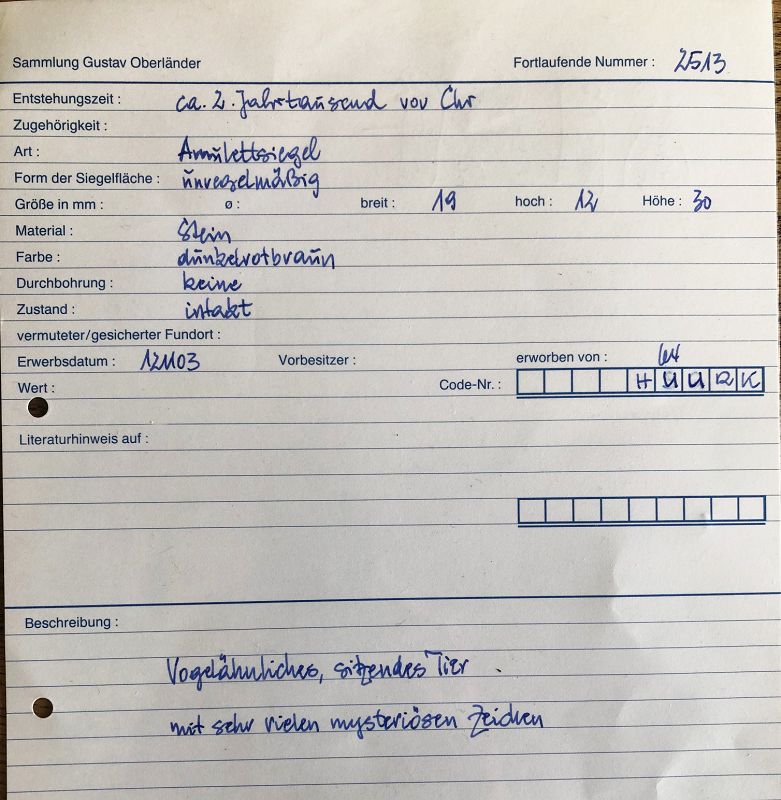 Sammlung Gustav Oberländer Fortlaufende Nummer : 2513
Entstehungszeit : ca. 2. Jahrtausend vor Chr
Zugehörigkeit :
Art : Amulettsiegel
Form der Siegelfläche : unregelmäßig
Größe in mm : ø : breit : 19 hoch : 12 Höhe : 30
Material : Stein
Farbe : dunkelrotbraun
Durchbohrung : keine
Zustand : intakt
vermuteter/gesicherter Fundort :
Erwerbsdatum : 121103 Vorbesitzer : erworben von :
Wert : Code-Nr. : HUURK
Literaturhinweis auf :
Beschreibung :
Vogelähnliches, sitzendes Tier
mit sehr vielen mysteriösen Zeichen